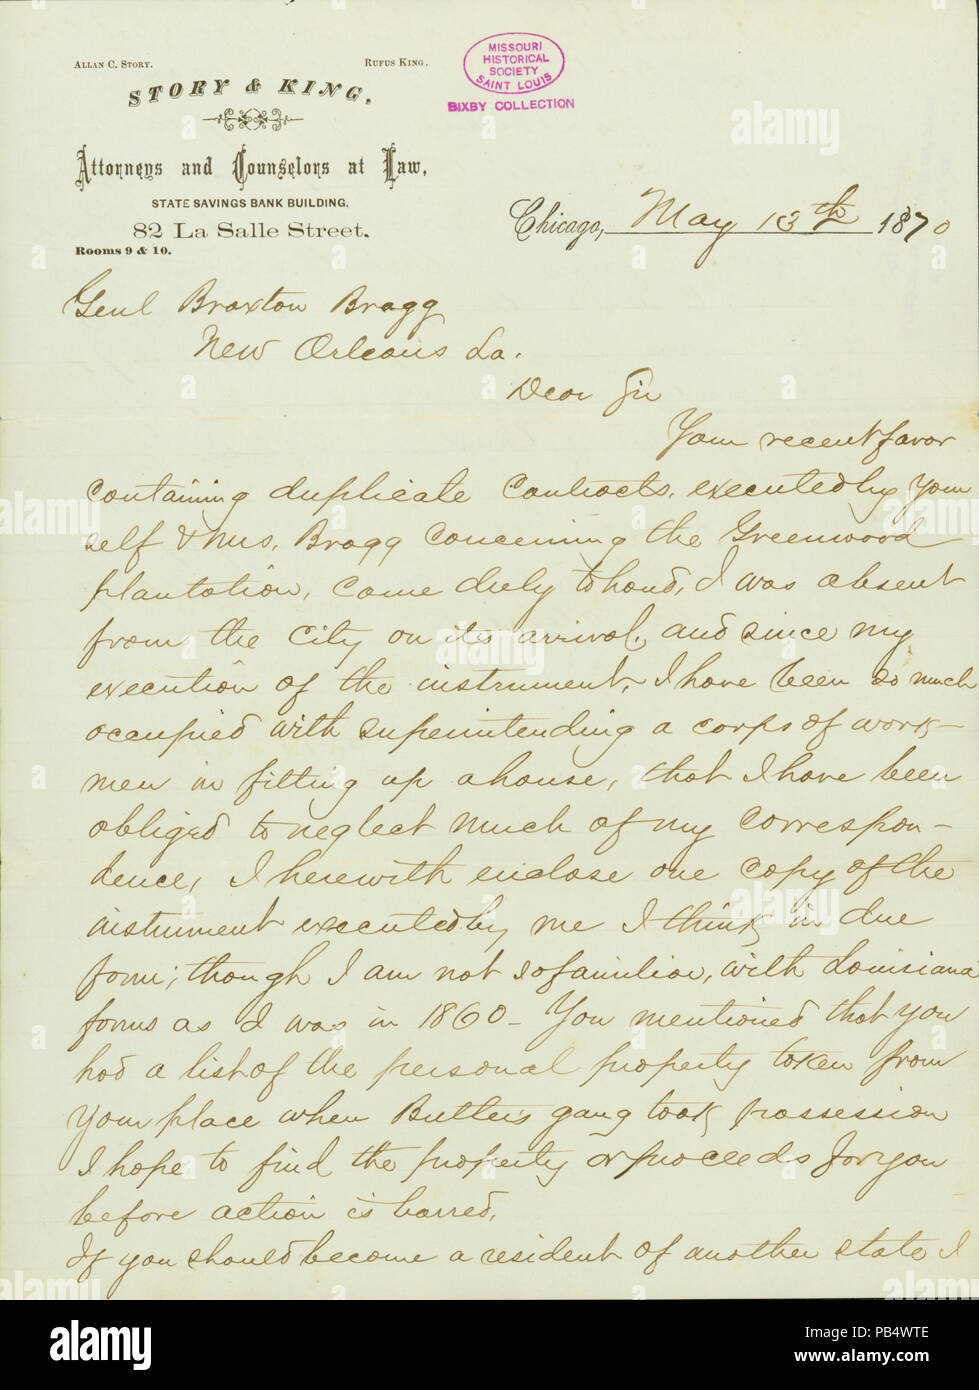 ALLAN C. STORY. RUFUS KING.
STORY & KING,
Attorneys and Counselors at Law,
STATE SAVINGS BANK BUILDING,
82 La Salle Street.
Rooms 9 & 10.
MISSOURI
HISTORICAL
SOCIETY
SAINT LOUIS
BIXBY COLLECTION
Chicago, May 13th 1870
Genl Braxton Bragg
New Orleans La.
Dear Sir
Your recent favor
containing duplicate contracts, executed by your
self & Mrs. Bragg concerning the Greenwood
plantation, came duly to hand, I was absent
from the City on its arrival, and since my
execution of the instrument, I have been so much
occupied with superintending a corps of work-
men in fitting up a house, that I have been
obliged to neglect much of my correspon-
dence, I herewith enclose one copy of the
instrument executed by me I think in due
form; though I am not so familiar, with Louisiana
forms as I was in 1860 - You mentioned that you
had a list of the personal property taken from
your place when Butlers gang took possession
I hope to find the property or proceeds for you
before action is barred,
If you should become a resident of another state I
alamy
www.alamy.com
PB4WTE